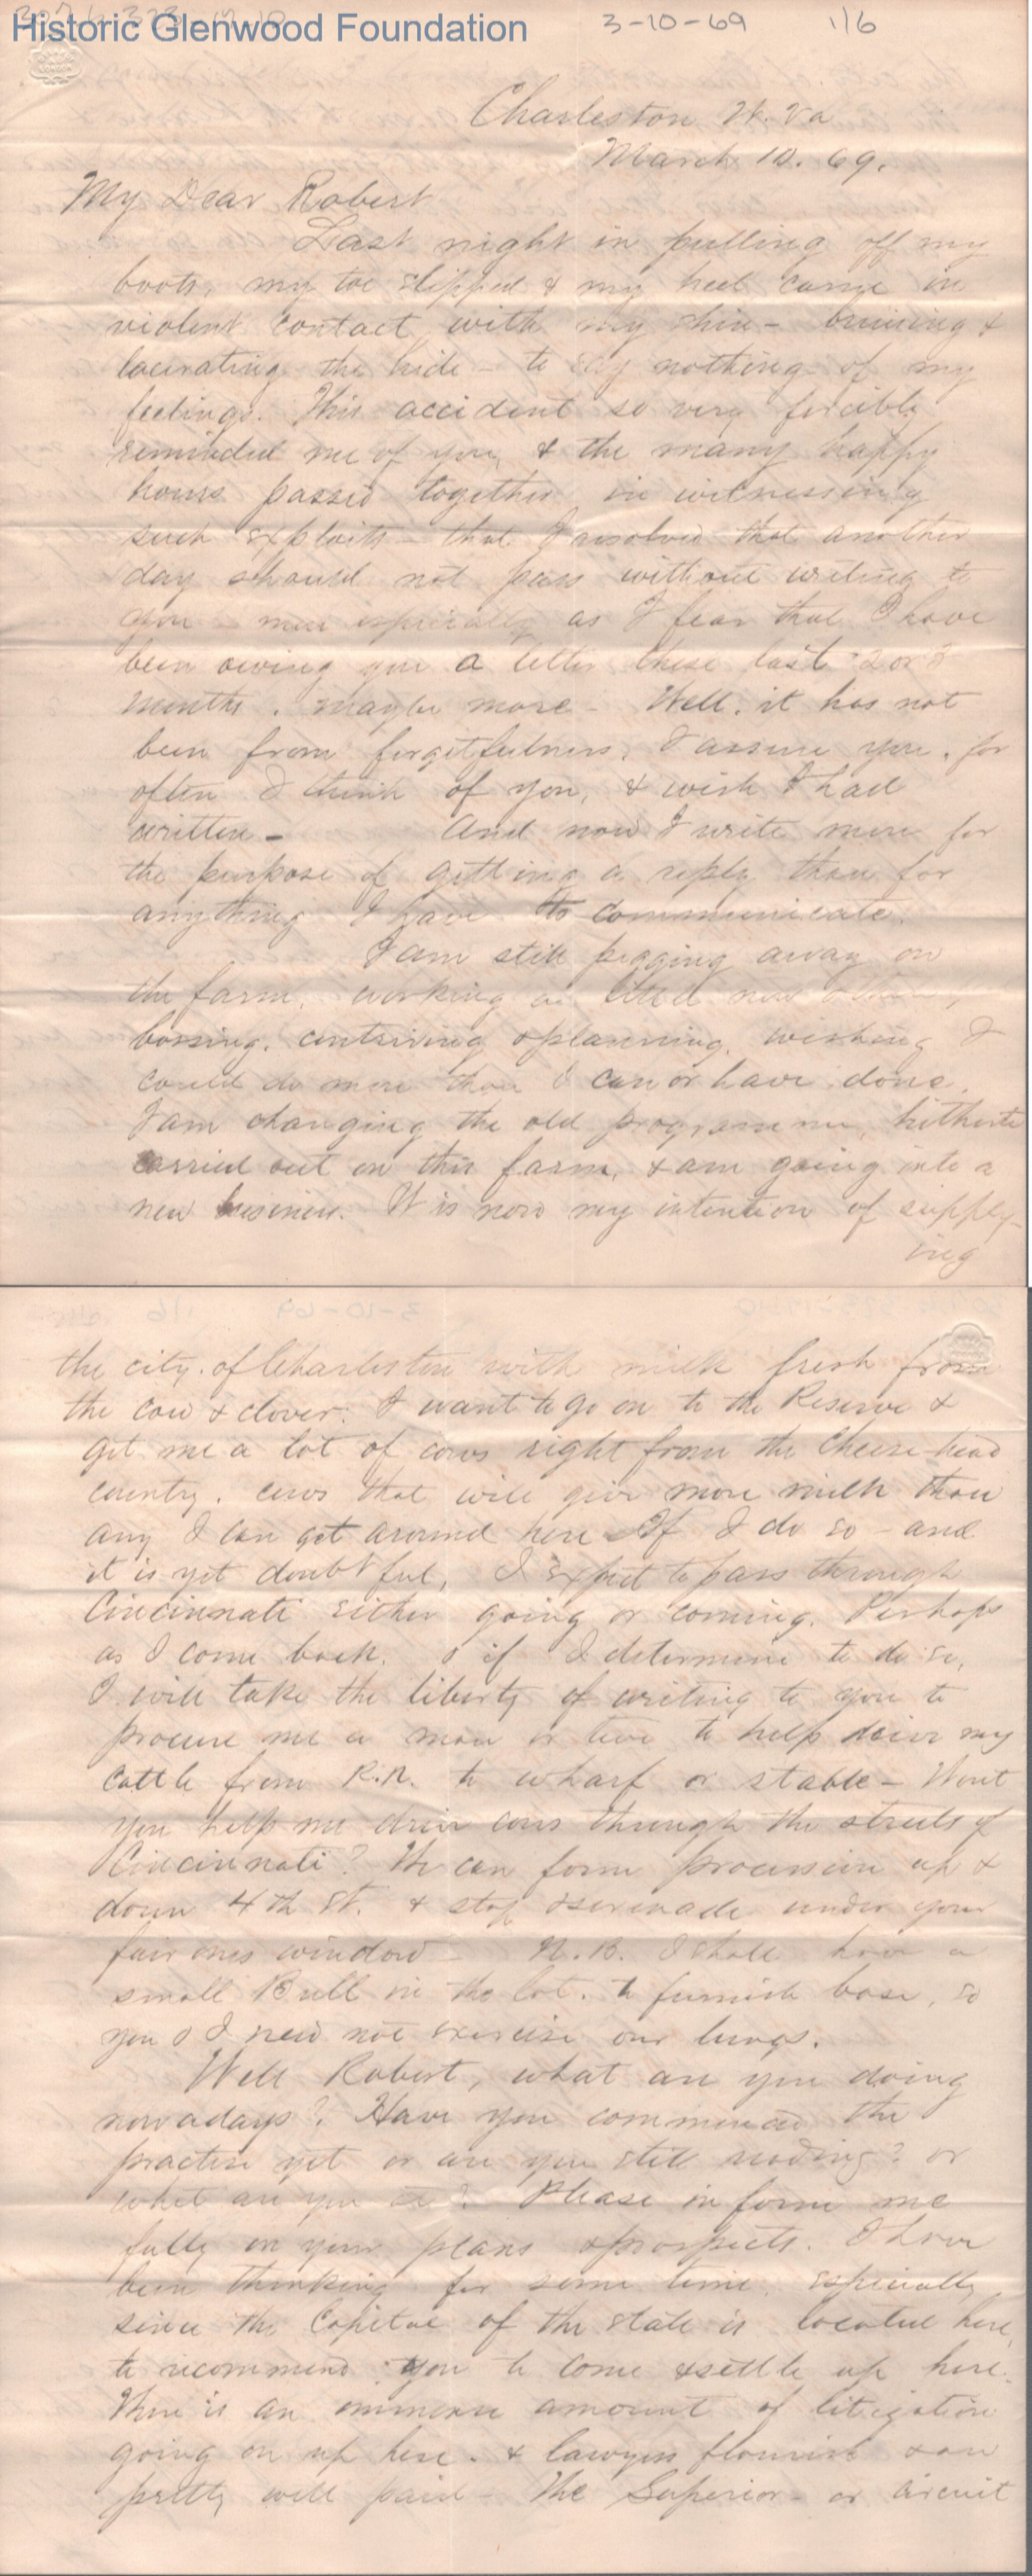 Historic Glenwood Foundation
3-10-69 1/6
Charleston W. Va
March 10. 69.
My Dear Robert
Last night in pulling off my
boots, my toe slipped & my heel came in
violent contact with my shin - bruising &
lacerating the hide - to say nothing of my
feelings. This accident so very forcibly
reminded me of you, & the many happy
hours passed together in witnessing
such exploits - that I resolved that another
day should not pass without writing to
you - more especially as I fear that I have
been owing you a letter these last 2 or 3
months, maybe more - Well, it has not
been from forgetfulness, I assure you, for
often I think of you, & wish I had
written - And now I write more for
the purpose of getting a reply than for
anything I have to communicate.
I am still pegging away on
the farm, working a little now
bossing, contriving & planning, wishing I
could do more than I can or have done.
I am changing the old programme, hitherto
carried out on this farm, & am going into a
new business. It is now my intention of supply-
ing
the city of Charleston with milk fresh from
the cow & clover. I want to go on to the Reserve &
get me a lot of cows right from the Cheese head
country, cows that will give more milk than
any I can get around here If I do so - and
it is yet doubtful, I expect to pass through
Cincinnati either going or coming. Perhaps
as I come back. & if I determine to do so,
I will take the liberty of writing to you to
procure me a man or two to help drive my
cattle from R.R. to wharf or stable - Wont
you help me drive cows through the streets of
Cincinnati? We can form procession up &
down 4th St. & stop & serenade under your
fair ones window - N.B. I shall have a
small Bull in the lot, to furnish base, so
you & I need not exercise our lungs.
Well Robert, what are you doing
nowadays? Have you commenced the
practice yet or are you still reading? or
what are you at? Please inform me
fully on your plans & prospects. I have
been thinking for some time, especially
since the Capitol of the state is located here,
to recommend you to come & settle up here.
There is an immense amount of litigation
going on up here. & lawyers flourish & are
pretty well paid - The Superior - or circuit